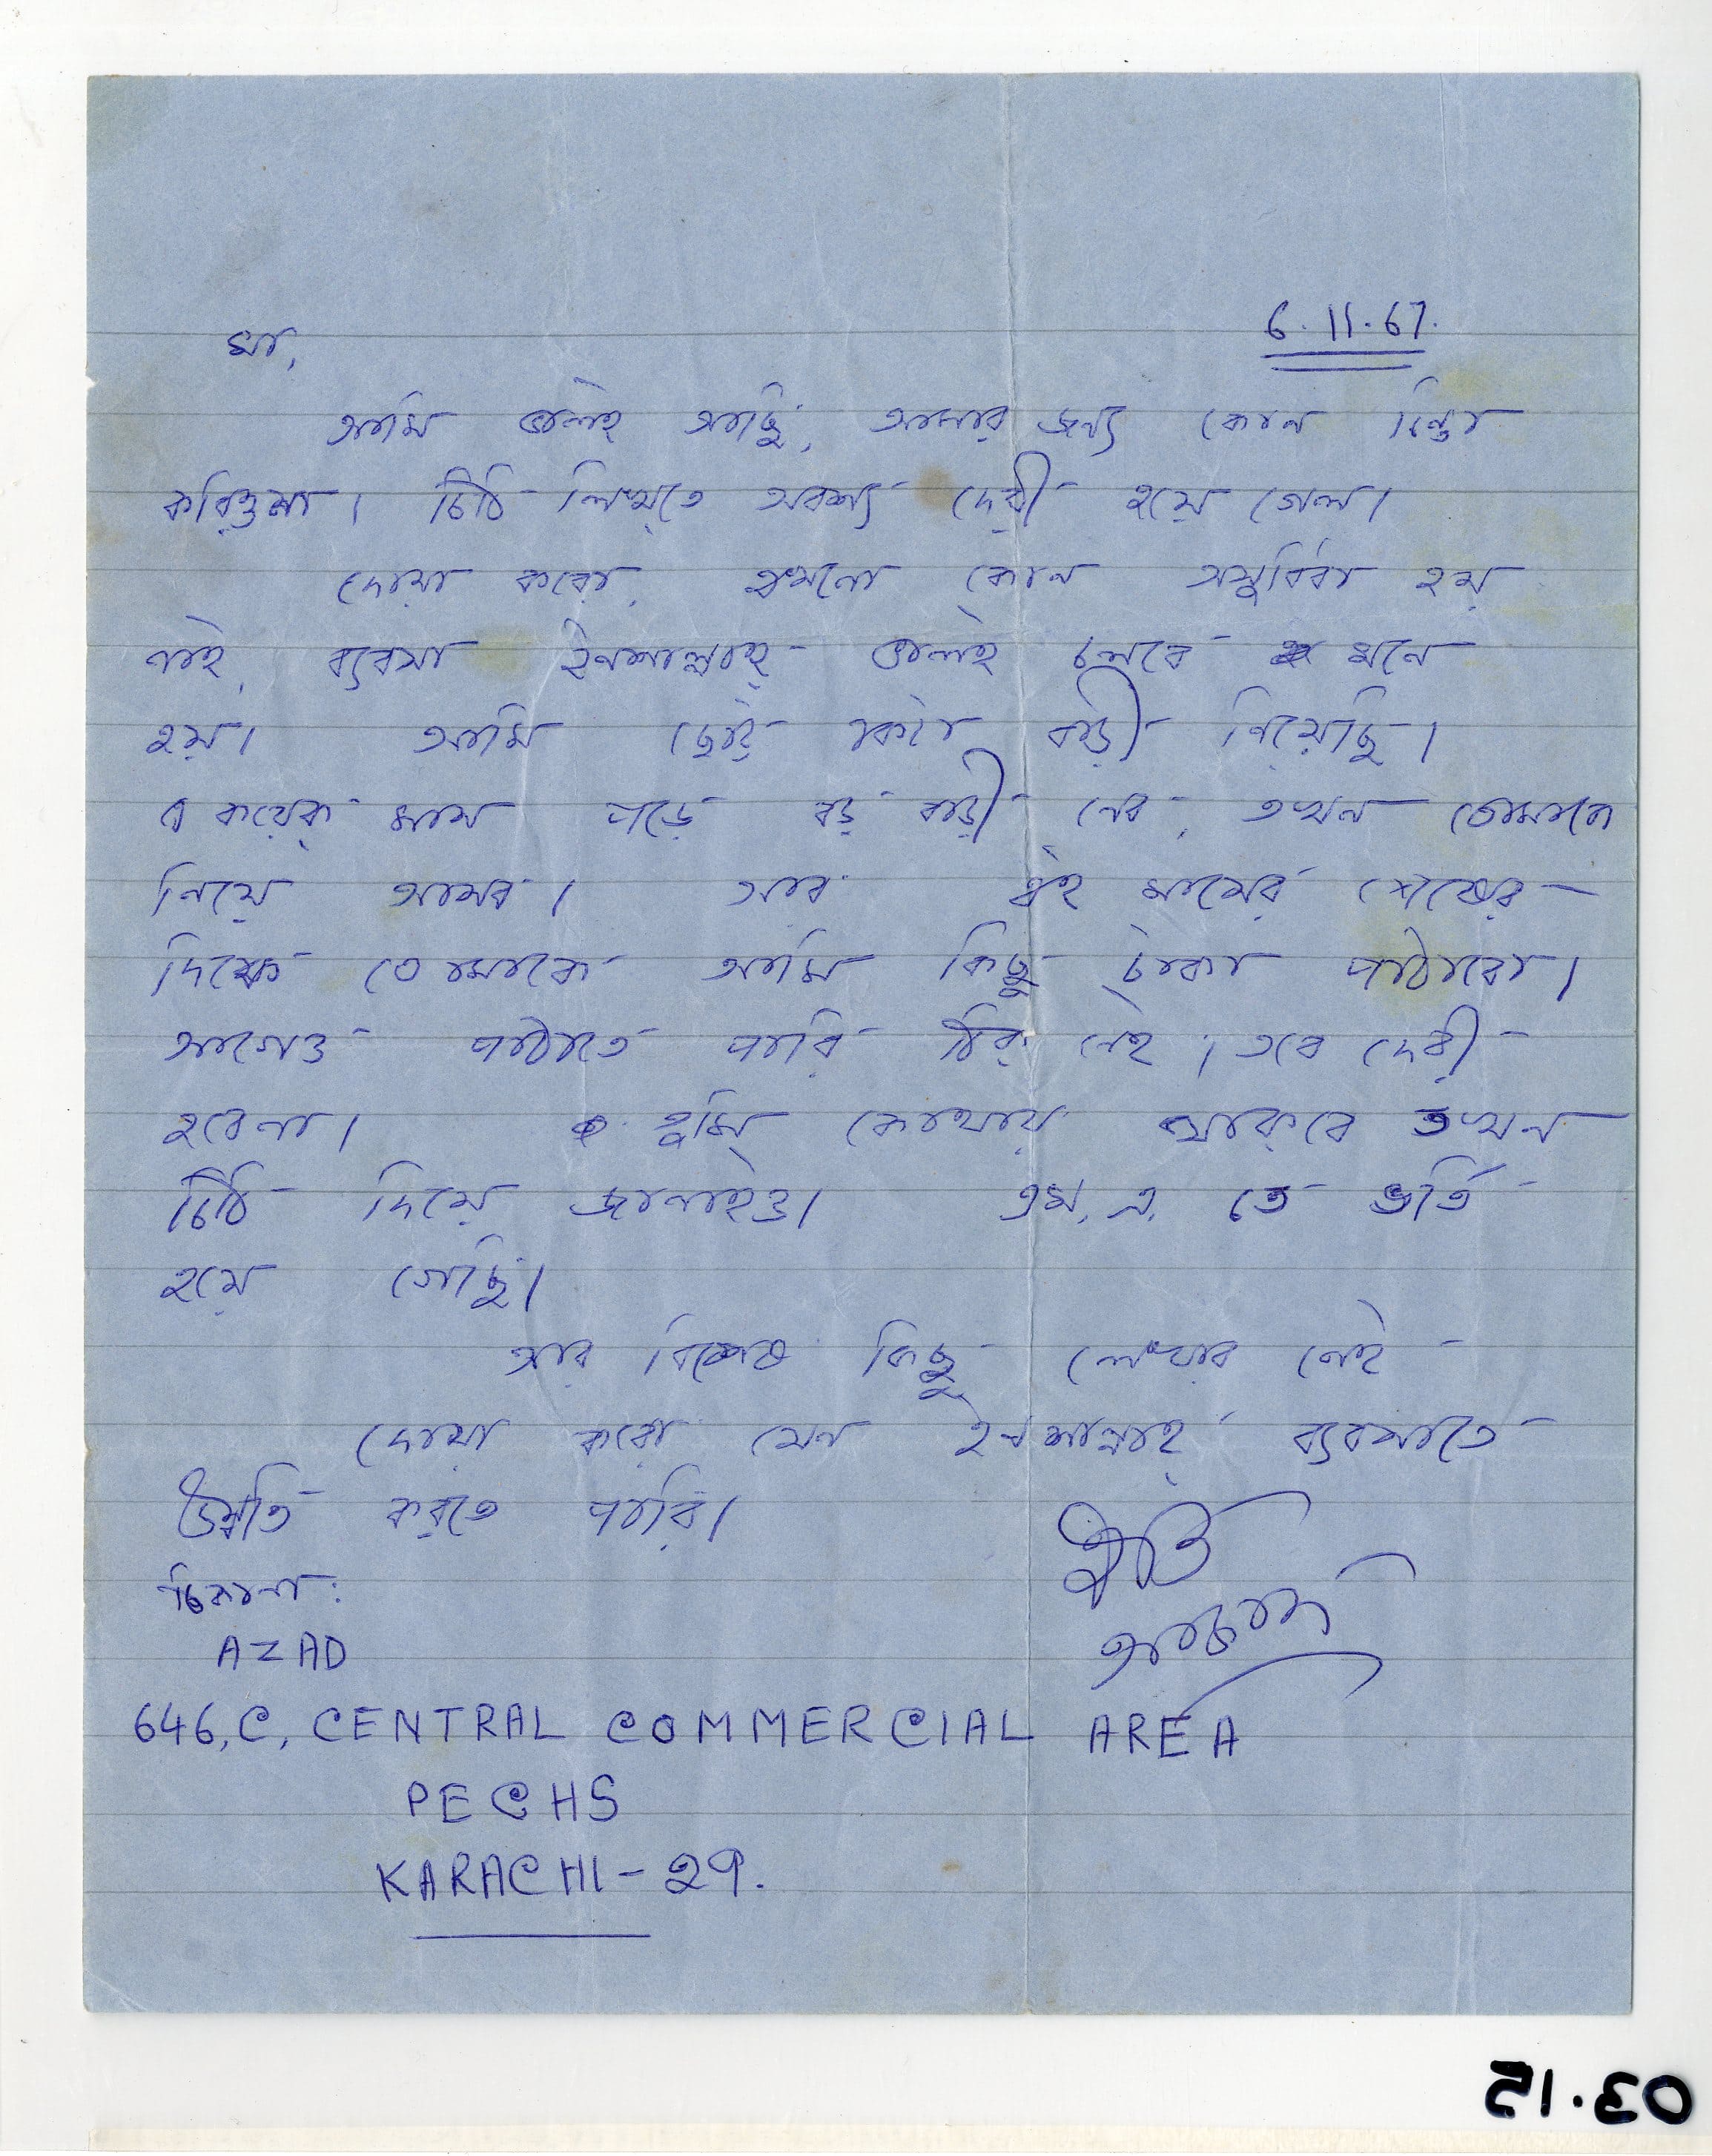 6.11.67.
মা,
আমি ভালই আছি, আমার জন্য কোন চিন্তা
করিওনা। চিঠি লিখতে অবশ্য দেরী হয়ে গেল।
দোয়া করো, এখনো কোন অসুবিধা হয়
নাই, ব্যবসা ইনশাল্লাহ ভালই চলবে মনে
হয়। আমি ছোট একটা বাড়ী নিয়েছি।
কয়েক মাস পড়ে বড় বাড়ী নেব, তখন তোমাকে
নিয়ে আসব। আর এই মাসের শেষের
দিকে তোমাকে আমি কিছু টাকা পাঠাবো।
আগেও পাঠাতে পারি ঠিক নেই। তবে দেরী
হবেনা। তুমি কোথায় থাকবে তখন
চিঠি দিয়ে জানাইও। এম. এ. তে ভর্তি
হয়ে গেছি।
আর বিশেষ কিছু লেখার নেই
দোয়া করো যেন ইনশাল্লাহ ব্যবসাতে
উন্নতি করতে পারি।
ইতি
আজাদ
ঠিকানা:
AZAD
646,C, CENTRAL COMMERCIAL AREA
PECHS
KARACHI-29.
03.15